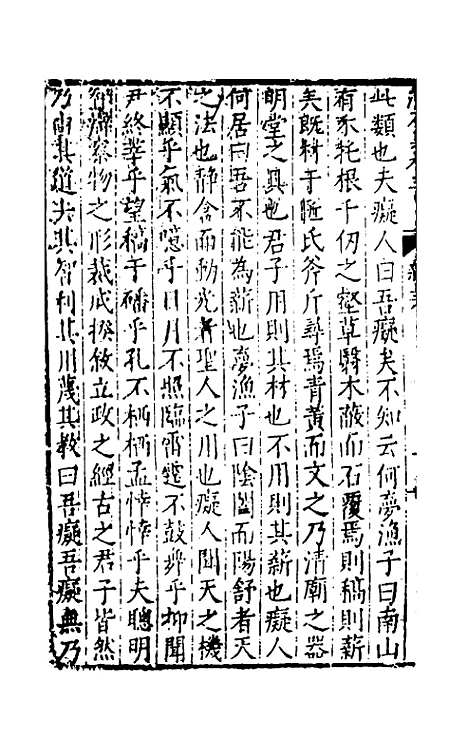 此類也夫癡人曰吾癡矣不知云何夢漁子曰南山
有木托根千仞之壑草翳木蔽而石覆焉則稿則薪
矣既時于匠氏斧斤尋焉青黄而文之乃清廟之器
明堂之具也君子用則其材也不用則其薪也癡人
何居曰吾不能為薪也夢漁子曰陰闔而陽舒者天
之法也静含而動光者聖人之用也癡人聞天之機
不顯乎氣不噫乎日月不照臨霄霆不鼓舞乎抑聞
尹終莘乎望稿于磻乎孔不栖栖孟悻悻乎夫聰明
智辯察物之形裁成揆攸立政之經古之君子皆然
乃南其道夫其智利其川蔑其教曰吾癡吾癡無乃